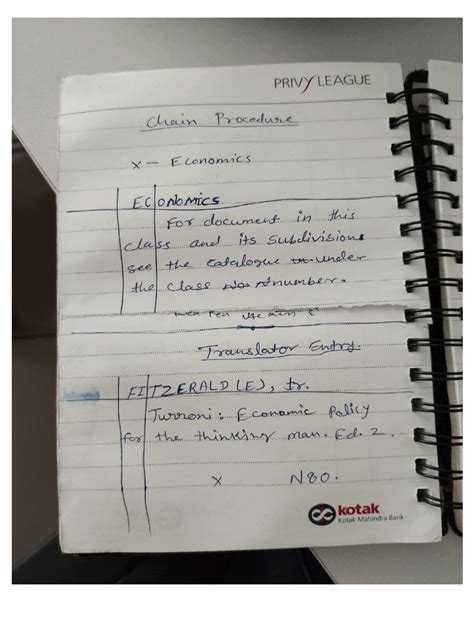 PRIVY LEAGUE
Chain Procedure
X - Economics
ECONOMICS
For document in this
class and its subdivisions
see the catalogue under
the class number.
Translator Entry.
FITZERALD (E), tr.
Turroni: Economic Policy
for the thinking man. Ed. 2.
X N80.
kotak
Kotak Mahindra Bank